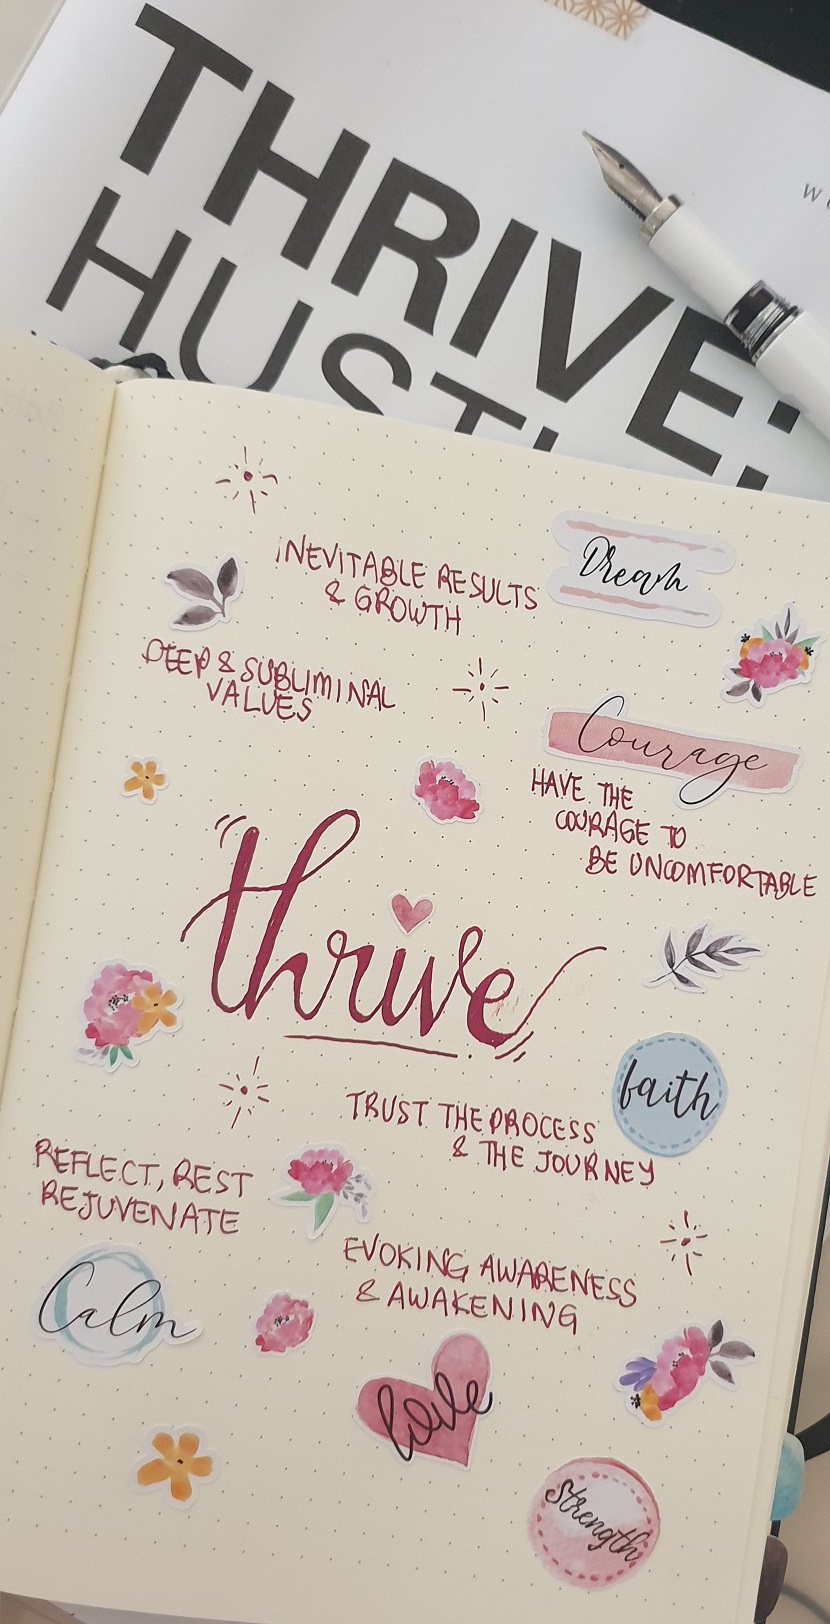 THRIVE:
HUSTL
INEVITABLE RESULTS
& GROWTH
Dream
DEEP & SUBLIMINAL
VALUES
Courage
HAVE THE
COURAGE TO
BE UNCOMFORTABLE
thrive
faith
TRUST THE PROCESS
& THE JOURNEY
REFLECT, REST
REJUVENATE
EVOKING AWARENESS
& AWAKENING
Calm
love
strength